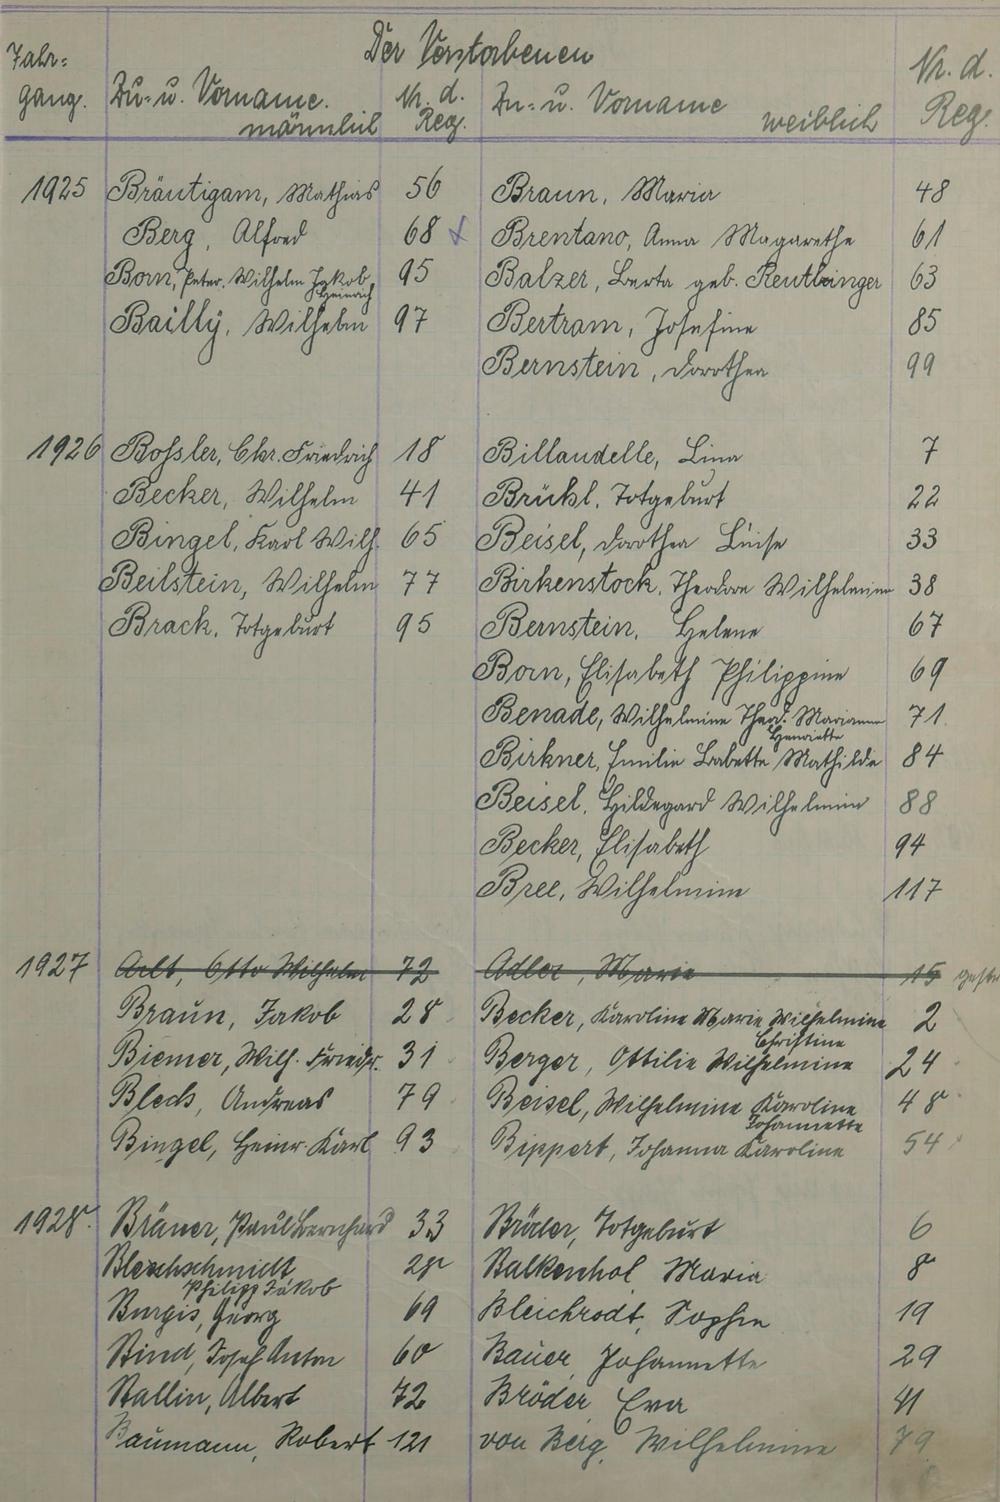 Der Verstorbenen
Jahr=
gang.
Zu- u. Vorname.
männlich
Nr. d.
Reg.
Zu- u. Vorname
weiblich
Nr. d.
Reg.
1925 Bräutigam, Mathias 56 Braun, Maria 48
Berg, Alfred 68 x Brentano, Anna Magarethe 61
Born, Peter. Wilhelm Jakob Heinrich 95 Balzer, Berta geb. Reutlinger 63
Bailly, Wilhelm 97 Bertram, Josefine 85
Bernstein, Dorothea 99
1926 Boßler, Chr. Friedrich 18 Billaudelle, Lina 7
Becker, Wilhelm 41 Brühl, Totgeburt 22
Bingel, Karl Wilh. 65 Beisel, Dorothea Luise 33
Beilstein, Wilhelm 77 Birkenstock, Theodore Wilhelmine 38
Brack, Totgeburt 95 Bernstein, Helene 67
Born, Elisabeth Philippine 69
Benade, Wilhelmine Theod. Marianne Henriette 71
Birkner, Emilie Babette Mathilde 84
Beisel, Hildegard Wilhelmine 88
Becker, Elisabeth 94
Bree, Wilhelmine 117
1927 Arlt, Otto Wilhelm 72 Adler, Marie 15
Braun, Jakob 28 Becker, Karoline Marie Wilhelmine Christine 2
Biemer, Wilh. Friedr. 31 Berger, Ottilie Wilhelmine 24
Blech, Andreas 79 Beisel, Wilhelmine Karoline Johannette 48
Bingel, Heinr. Karl 93 Bippert, Johanna Karoline 54
1928. Bräuer, Paul Bernhard 33 Bruder, Totgeburt 6
Blechschmidt Philipp Jakob 28 Balkenhol Maria 8
Burgis, Georg 69 Bleichrodt, Sophie 19
Bind, Josef Anton 60 Bauer, Johannette 29
Ballin, Albert 72 Bröder, Eva 41
Baumann, Robert 121 von Berg, Wilhelmine 79